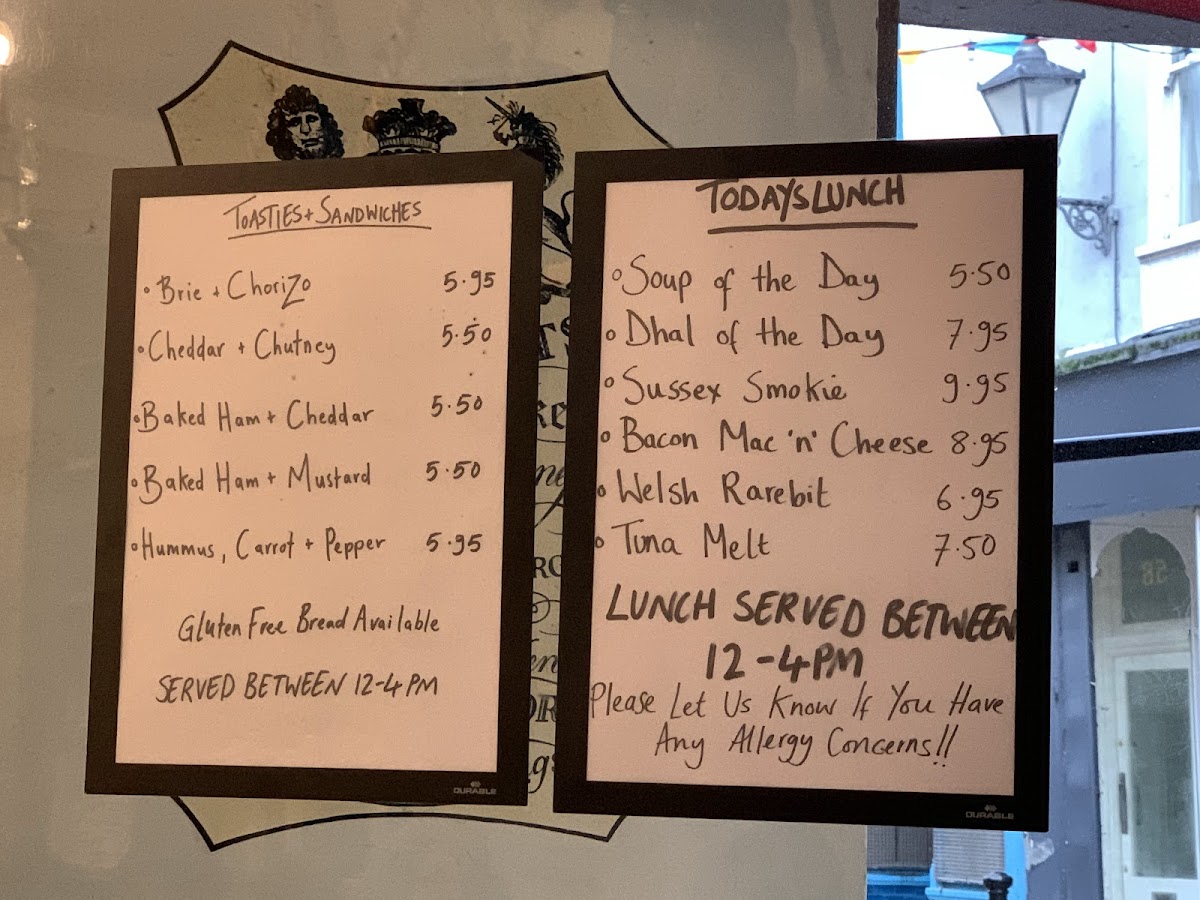 TOASTIES + SANDWICHES
• Brie + Chorizo 5.95
• Cheddar + Chutney 5.50
• Baked Ham + Cheddar 5.50
• Baked Ham + Mustard 5.50
• Hummus, Carrot + Pepper 5.95
Gluten Free Bread Available
SERVED BETWEEN 12-4 PM
DURABLE
TODAYS LUNCH
• Soup of the Day 5.50
• Dhal of the Day 7.95
• Sussex Smokie 9.95
• Bacon Mac 'n' Cheese 8.95
• Welsh Rarebit 6.95
• Tuna Melt 7.50
LUNCH SERVED BETWEEN
12-4PM
Please Let Us Know If You Have
Any Allergy Concerns!!
DURABLE